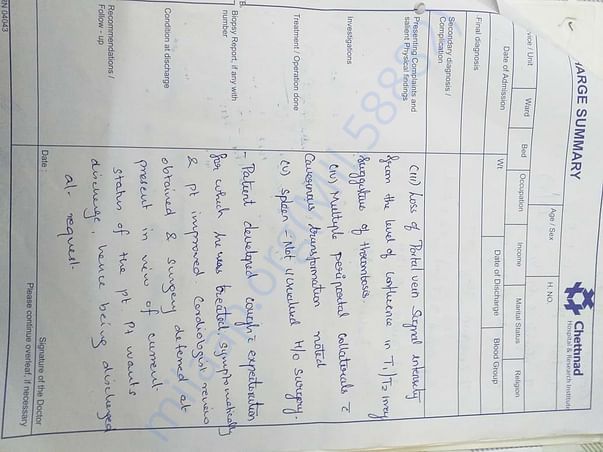 HARGE SUMMARY
Chettinad
Hospital & Research Institute
Age / Sex
H. NO.
vice / Unit
Ward
Bed
Occupation
Income
Marital Status
Religion
Date of Admission
Wt
Date of Discharge
Blood Group
Final diagnosis
Secondary diagnosis /
Complication
Presenting Complaints and
salient Physical findings
Investigations
Treatment / Operation done
Biopsy Report, if any with
number
Condition at discharge
Recommendations /
Follow - up
(iii) Loss of Portal vein Signal intensity
from the level of confluence in T1, T2 may
suggestive of thrombosis.
(iv) Multiple periportal collaterals c̄
Cavernous transformation noted
(v) Spleen - Not visualised H/o Surgery.
Patient developed cough c̄ expectoration
for which he was treated symptomatically
& pt improved. Cardiologist review
obtained & surgery deferred at
present in view of current
status of the pt. Pt wants
discharge, hence being discharged
at request.
Date :
Signature of the Doctor
Please continue overleaf, if necessary
EN 04043